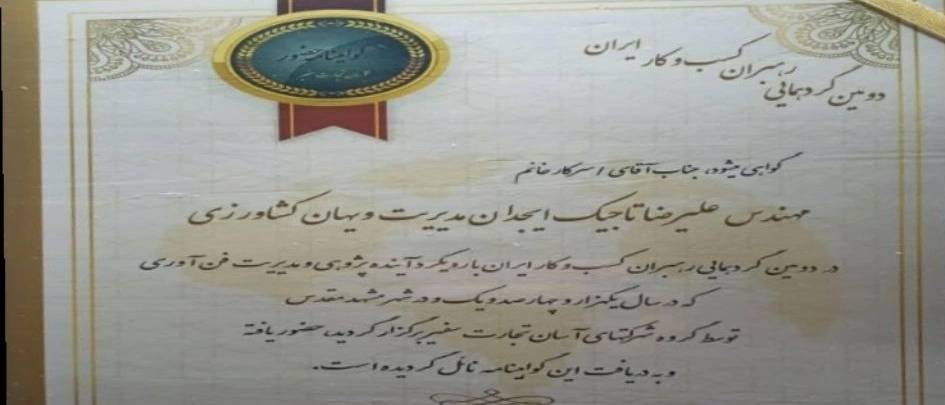 گواهینامه حضور
دومین گردهمایی رهبران کسب و کار ایران
گواهی میشود، جناب آقای / سرکار خانم
مهندس علیرضا تاجیک ایجدان مدیریت ویهان کشاورزی
در دومین گردهمایی رهبران کسب و کار ایران با رویکرد آینده پژوهی و مدیریت فن آوری
که در سال یکهزار و چهارصد و یک و در شهر مشهد مقدس
توسط گروه شرکتهای آسان تجارت سفیر برگزار گردید، حضور یافته
و به دریافت این گواهینامه نائل گردیده است.